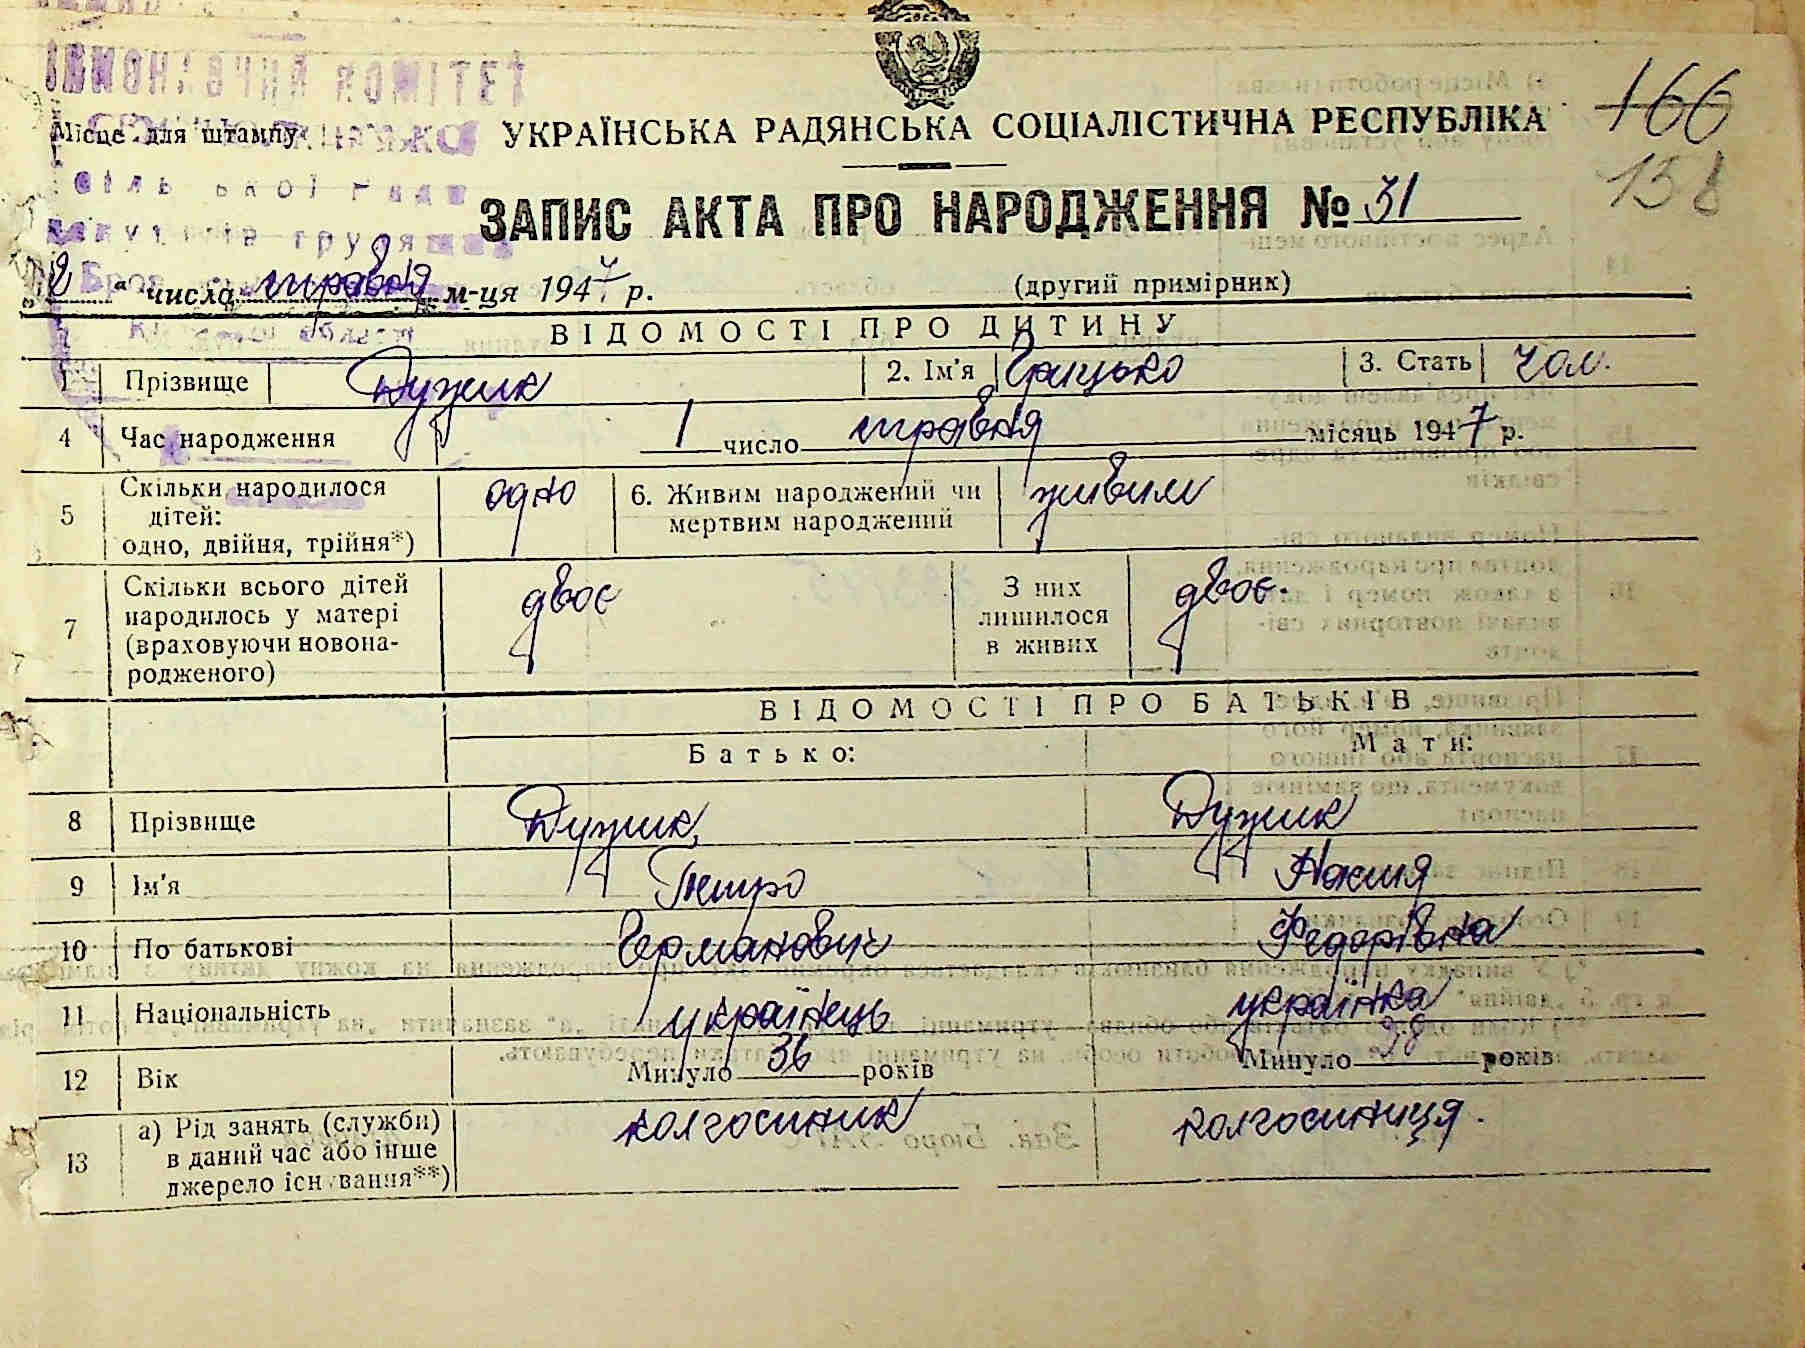 ВИКОНАВЧИЙ КОМІТЕТ
Місце для штампу
сільської Ради
депутатів трудящих
УКРАЇНСЬКА РАДЯНСЬКА СОЦІАЛІСТИЧНА РЕСПУБЛІКА
166
158
ЗАПИС АКТА ПРО НАРОДЖЕННЯ № 31
2 " числа травня м-ця 1947 р. (другий примірник)
області
ВІДОМОСТІ ПРО ДИТИНУ
1 Прізвище Дужик 2. Ім'я Грицько 3. Стать чол.
4 Час народження 1 число травня місяць 1947 р.
5 Скільки народилося дітей: одно, двійня, трійня*) одно 6. Живим народжений чи мертвим народжений живим
7 Скільки всього дітей народилось у матері (враховуючи новонародженого) двоє З них лишилося в живих двоє.
ВІДОМОСТІ ПРО БАТЬКІВ
Батько: Мати:
8 Прізвище Дужик Дужик
9 Ім'я Петро Акиля
10 По батькові Германович Федорівна
11 Національність українець українка
12 Вік Минуло 36 років Минуло 28 років
13 а) Рід занять (служби) в даний час або інше джерело існування**) колгоспник колгоспниця.